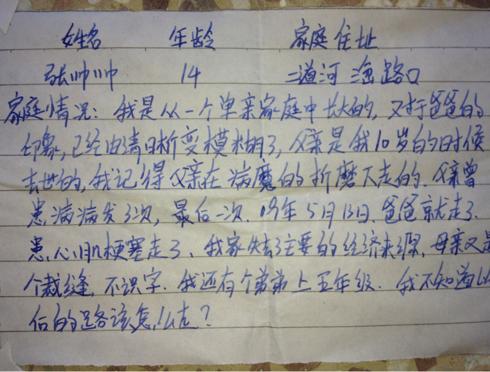 姓名 年龄 家庭住址
张帅帅 14 二道河 渔路口
家庭情况: 我是从一个单亲家庭中长大的, 对于爸爸的
印象, 已经由清晰变模糊了, 父亲是我10岁的时候
去世的, 我记得父亲在病魔的折磨下走的. 父亲曾
患病病发3次, 最后一次. 09年5月13日. 爸爸就走了.
患心肌梗塞走了. 我家失去主要的经济来源, 母亲又是
个裁缝, 不识字. 我还有个弟弟上五年级. 我不知道以
后的路该怎么走?